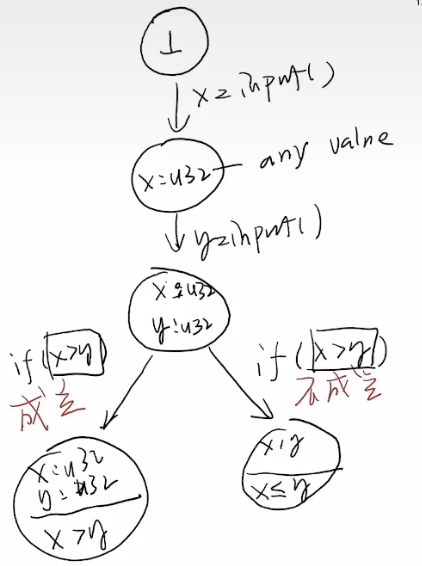 ⊥
x=input()
x=u32
any value
y=input()
x:u32
y:u32
if(x>y)
成立
if(x>y)
不成立
x:u32
y=u32
x>y
x,y
x≤y